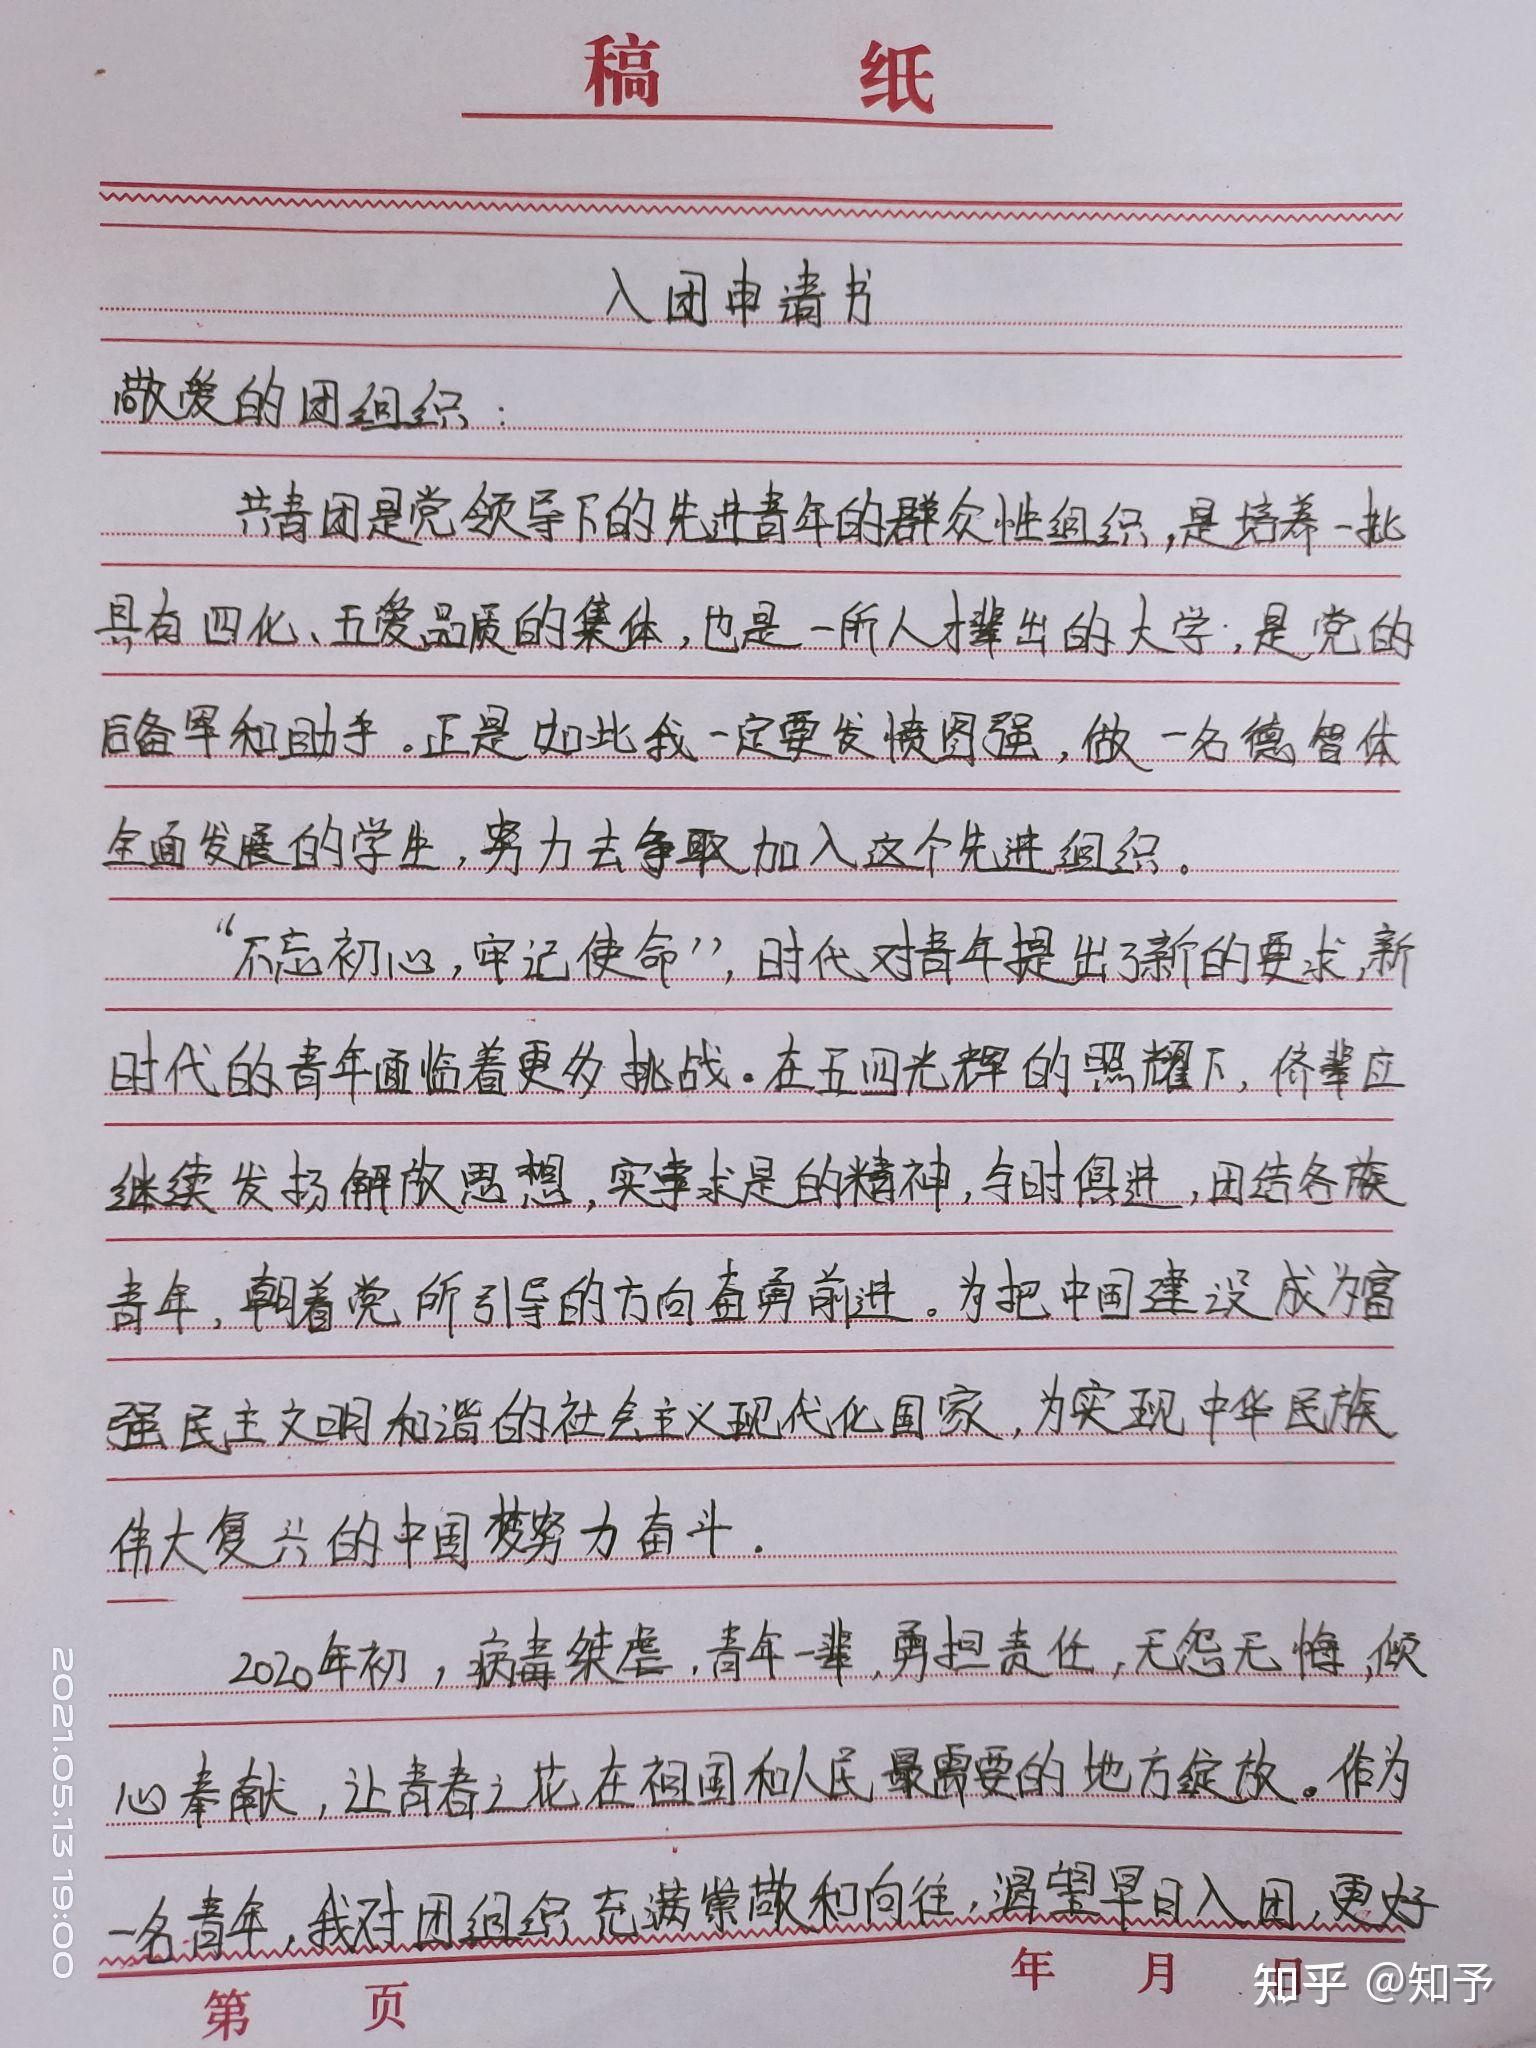 稿 纸
入团申请书
敬爱的团组织：
共青团是党领导下的先进青年的群众性组织，是培养一批
具有四化、五爱品质的集体，也是一所人才辈出的大学，是党的
后备军和助手。正是如此我一定要发愤图强，做一名德智体
全面发展的学生，努力去争取加入这个先进组织。
“不忘初心，牢记使命”，时代对青年提出了新的要求，新
时代的青年面临着更多挑战。在五四光辉的照耀下，侪辈应
继续发扬解放思想，实事求是的精神，与时俱进，团结各族
青年，朝着党所引导的方向奋勇前进。为把中国建设成为富
强民主文明和谐的社会主义现代化国家，为实现中华民族
伟大复兴的中国梦努力奋斗．
2020年初，病毒桀虐，青年一辈，勇担责任，无怨无悔，倾
心奉献，让青春之花在祖国和人民最需要的地方绽放。作为
一名青年，我对团组织充满崇敬和向往，渴望早日入团，更好
年 月 日
第 页
知乎 @知予
2021.05.13 19:00